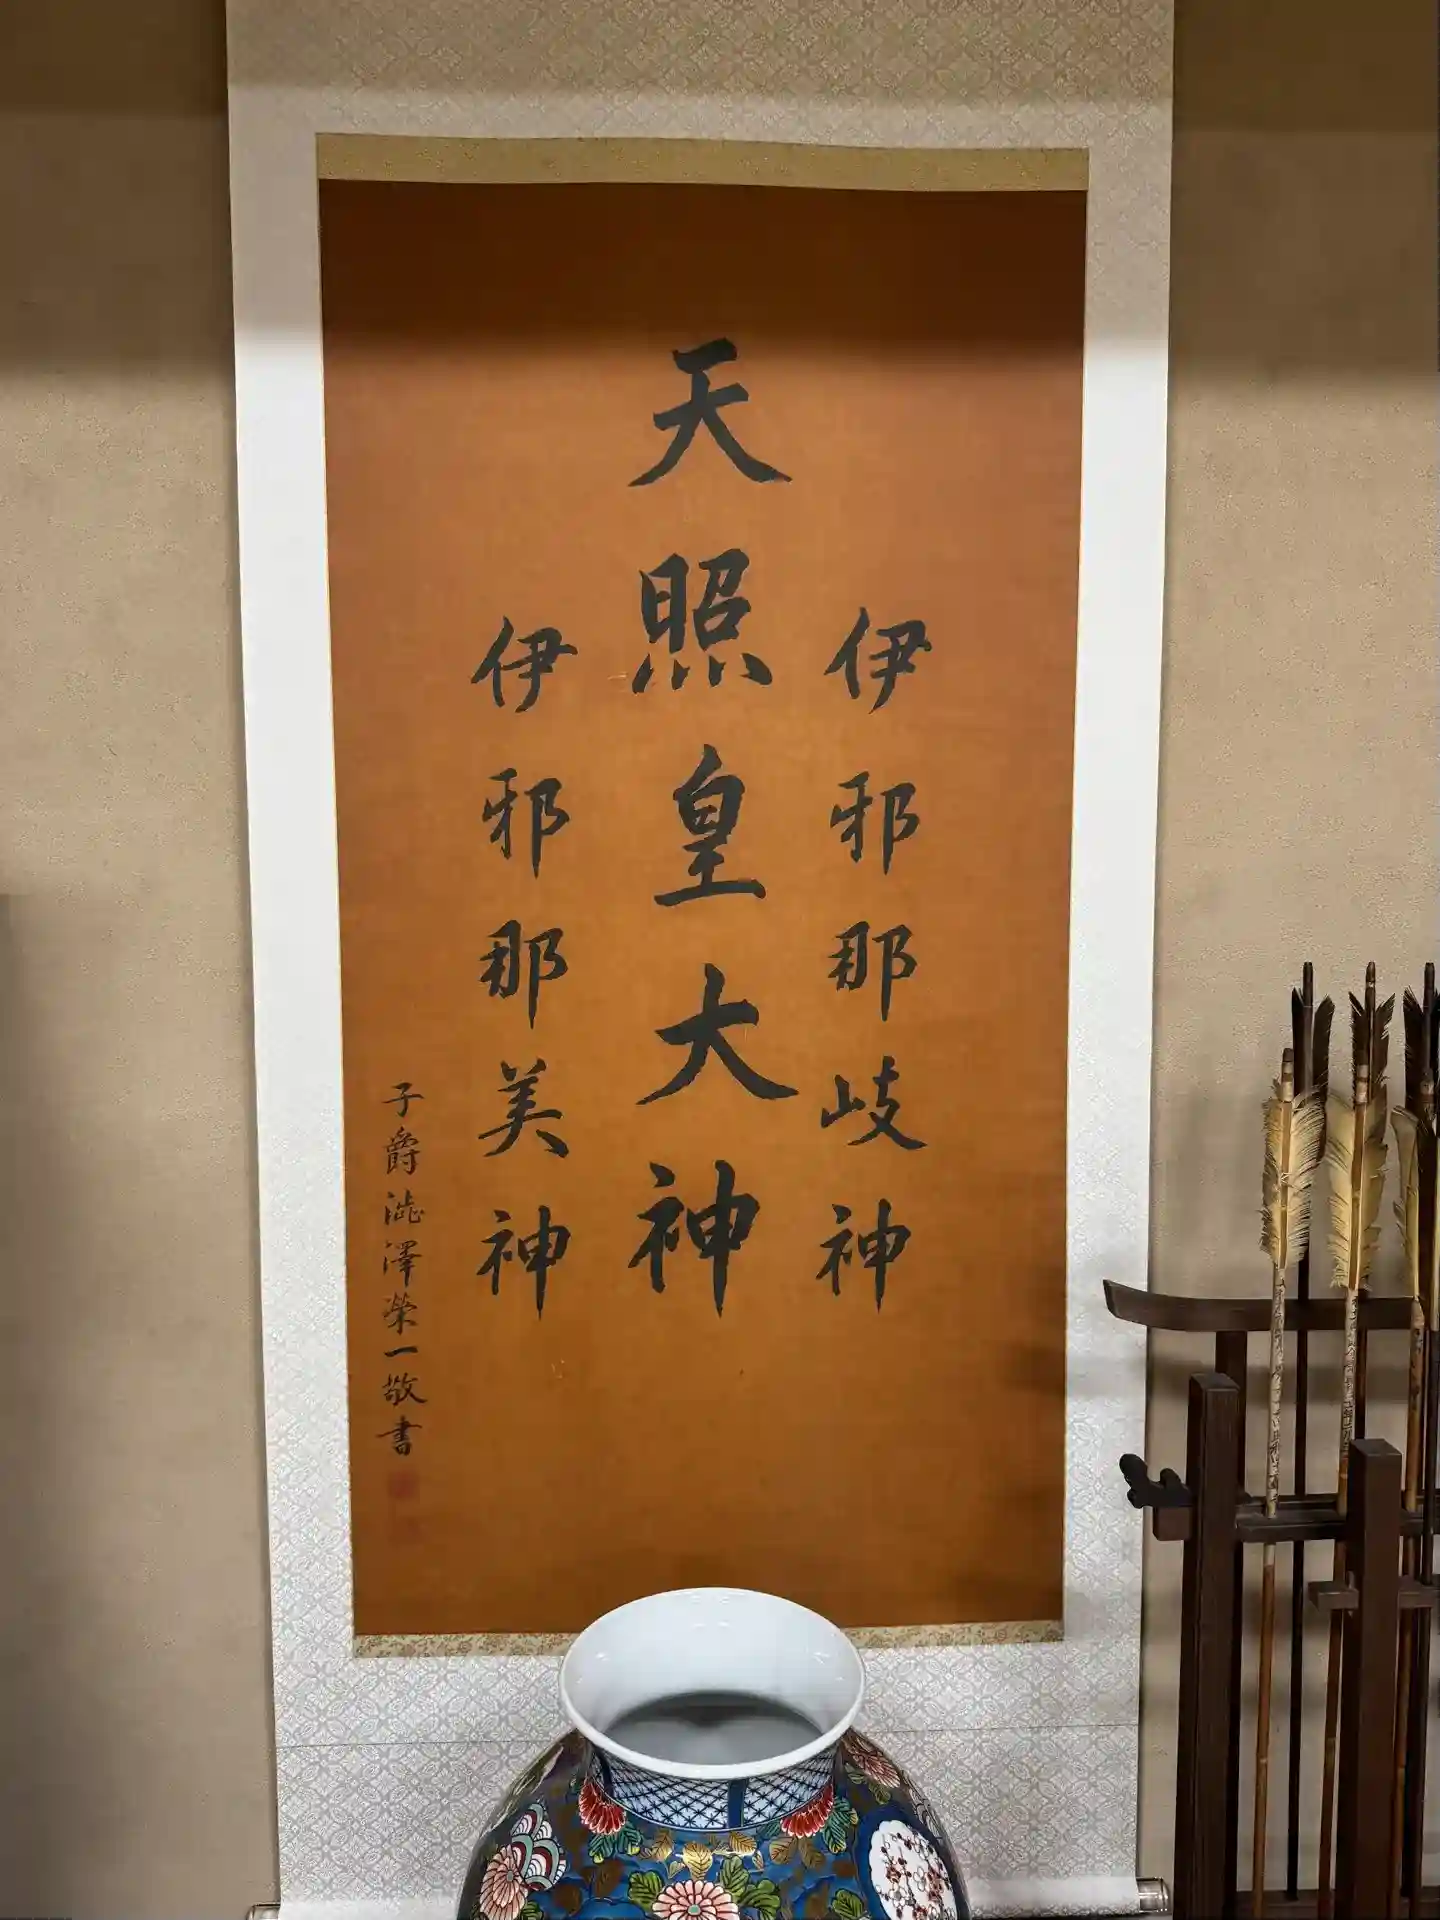 伊邪那岐神
天照皇大神
伊邪那美神
子爵澁澤榮一敬書